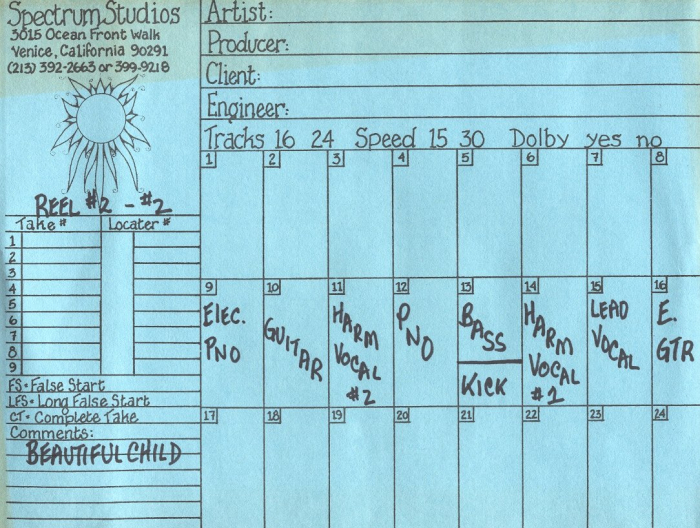 Spectrum Studios
3015 Ocean Front Walk
Venice, California 90291
(213) 392-2663 or 399-9218
REEL #2 - #2
Take # Locater #
1
2
3
4
5
6
7
8
9
FS • False Start
LFS • Long False Start
CT • Complete Take
Comments:
BEAUTIFUL CHILD
Artist:
Producer:
Client:
Engineer:
Tracks 16 24 Speed 15 30 Dolby yes no
1 2 3 4 5 6 7 8
9 10 11 12 13 14 15 16
ELEC.
PNO
GUITAR
HARM
VOCAL
#2
PNO
BASS
KICK
HARM
VOCAL
#1
LEAD
VOCAL
E.
GTR
17 18 19 20 21 22 23 24